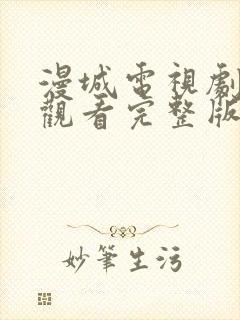 漫城電視劇
觀看完整版
妙筆生污